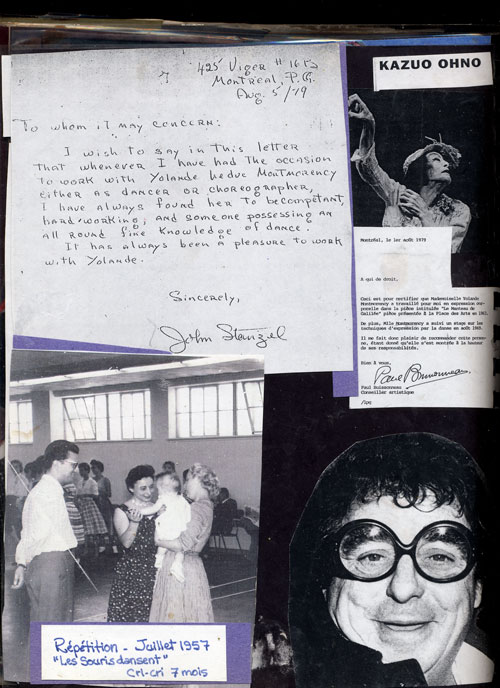 425 Viger #
Montreal, P.Q.
Aug. 5/79
To whom it may concern:
I wish to say in this letter
that whenever I have had the occasion
to work with Yolande Leduc Montmorency
either as dancer or choreographer,
I have always found her to be competant,
hard-working, and someone possessing an
all round fine knowledge of dance.
It has always been a pleasure to work
with Yolande.
Sincerely,
John Stanzel
KAZUO OHNO
Montréal, le 1er août 1979
A qui de droit,
Ceci est pour certifier que Mademoiselle Yolande
Montmorency a travaillé pour moi en expression cor-
porelle dans la pièce intitulée "Le Manteau de
Galilée" pièce présentée à la Place des Arts en
De plus, Mlle Montmorency a suivi un stage sur les
techniques d'expression par la danse en août
Il me fait donc plaisir de recommander cette person-
ne, étant donné qu'elle s'est montrée à la hauteur
de ses responsabilités.
Bien à vous,
Paul Buissonneau
Paul Buissonneau
Conseiller artistique
Répétition - Juillet 1957
"Les Souris dansent"
Cri-cri 7 mois